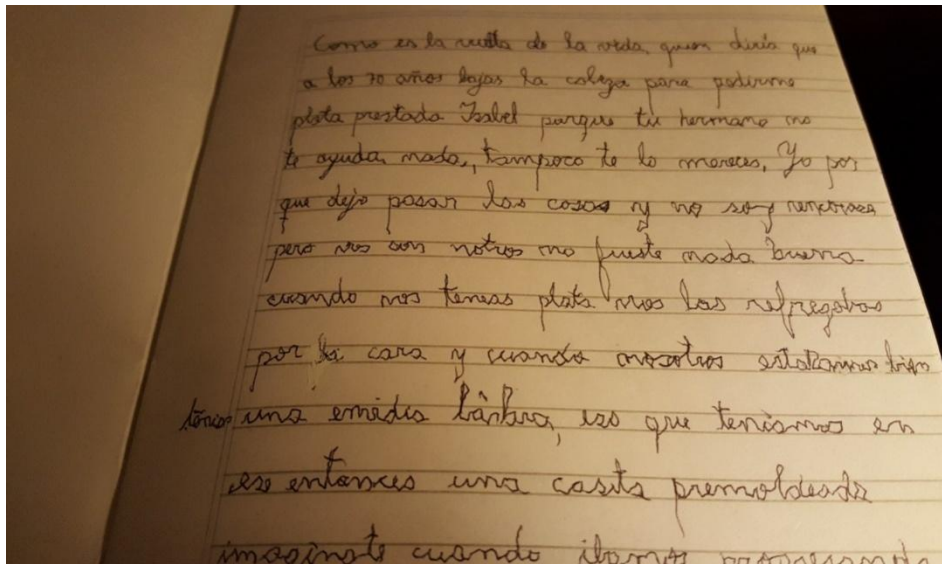 Como es la vuelta de la vida, quien diria que
a los 70 años bajas la cabeza para pedirme
plata prestada Isabel porque tu hermano no
te ayuda nada, tampoco te lo mereces, Yo por
que dejo pasar las cosas y no soy rencorosa
pero vos con notros no fueste nada buena
cuando vos tenias plata nos las refregabas
por la cara y cuando nosotros estabamos bien
tenias una emidia bárbara, eso que teniamos en
ese entonces una casita premoldeada
imaginate cuando ibamos progresando